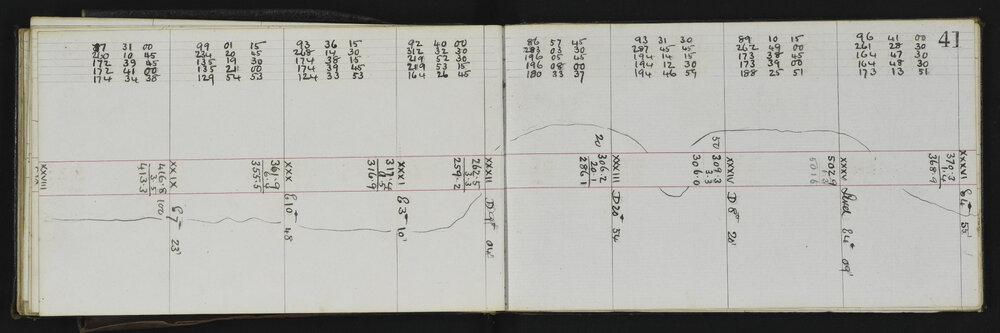 41
87 31 00
280 10 45
172 39 45
172 41 00
174 34 38
99 01 15
234 20 45
135 19 30
135 21 00
129 54 53
93 36 15
268 14 30
174 38 15
174 39 45
124 33 53
92 40 00
312 32 30
219 52 30
219 53 15
164 26 45
86 57 45
283 03 30
196 05 45
196 08 00
180 33 37
93 31 30
287 45 45
194 14 15
194 12 30
194 46 59
89 10 15
262 49 00
173 38 45
173 39 00
188 25 51
96 41 00
261 28 30
164 47 30
164 48 30
173 13 51
XXVIII
XXIX
416.8
3.5
413.3
100
E 7° 23'
XXX
361.9
6.4
355.5
E 10° 48
XXXI
317.4
0.5
316.9
E 3° 10'
XXXII
262.5
3.3
259.2
D 9° 04'
XXXIII
306.2
20.1
286.1
20
D 20° 54
XXXIV
309.3
3.3
306.0
50
D 8° 20'
XXXV
502.9
1.3
501.6
Level 84° 09'
XXXVI
370.3
1.4
368.9
E 4° 55'